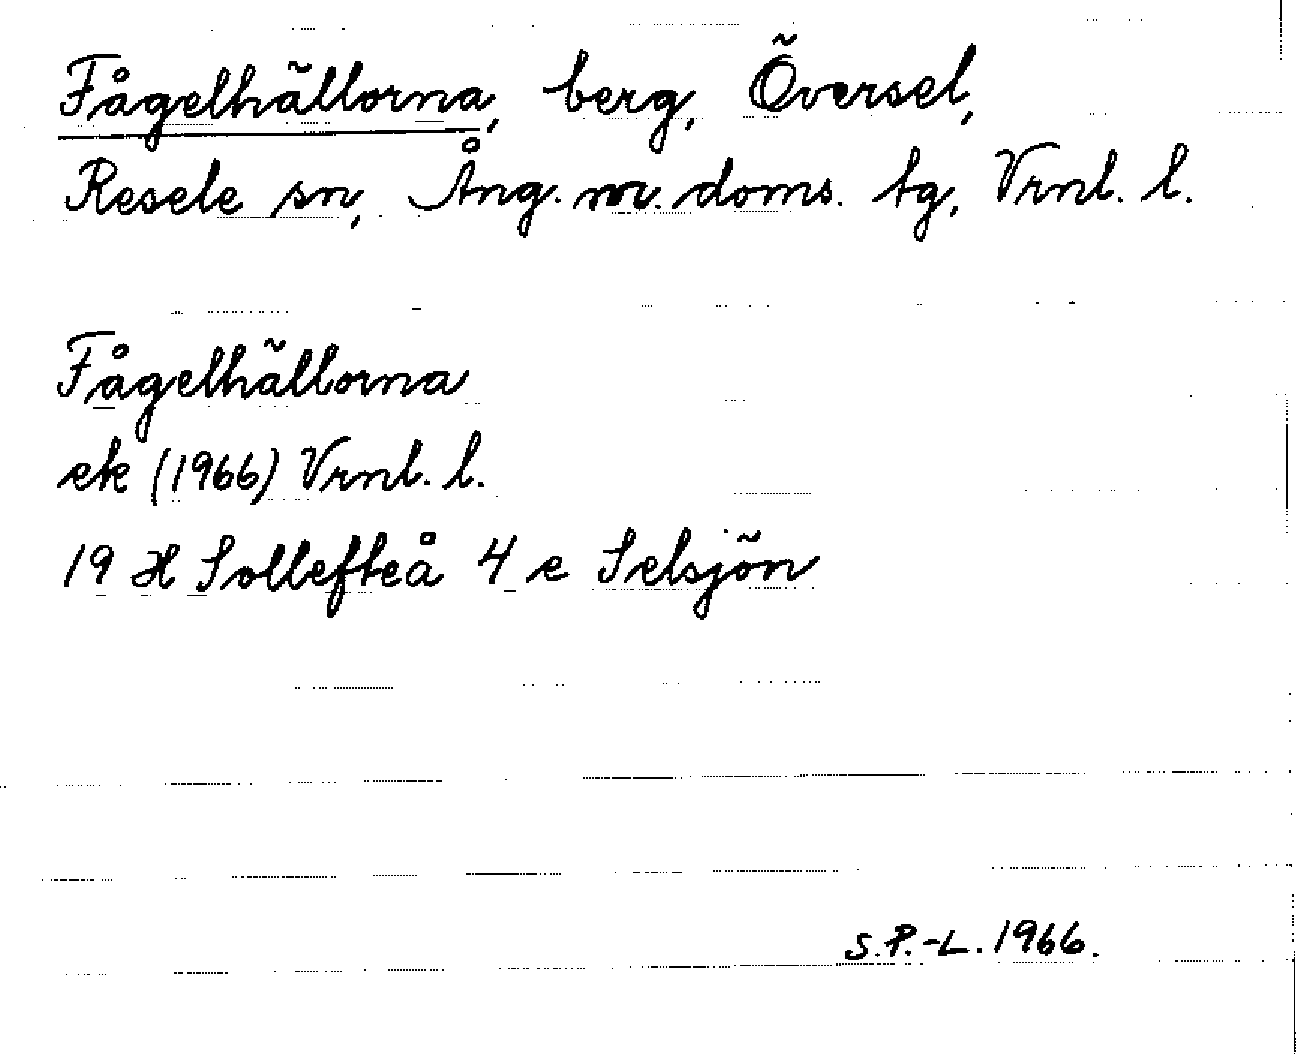 Fågelhällorna, berg, Översel,
Resele sn, Ång. m. doms. tg, Vrnl. l.
Fågelhällorna
ek (1966) Vrnl. l.
19 H Sollefteå 4 e Selsjön
S.P.-L. 1966.